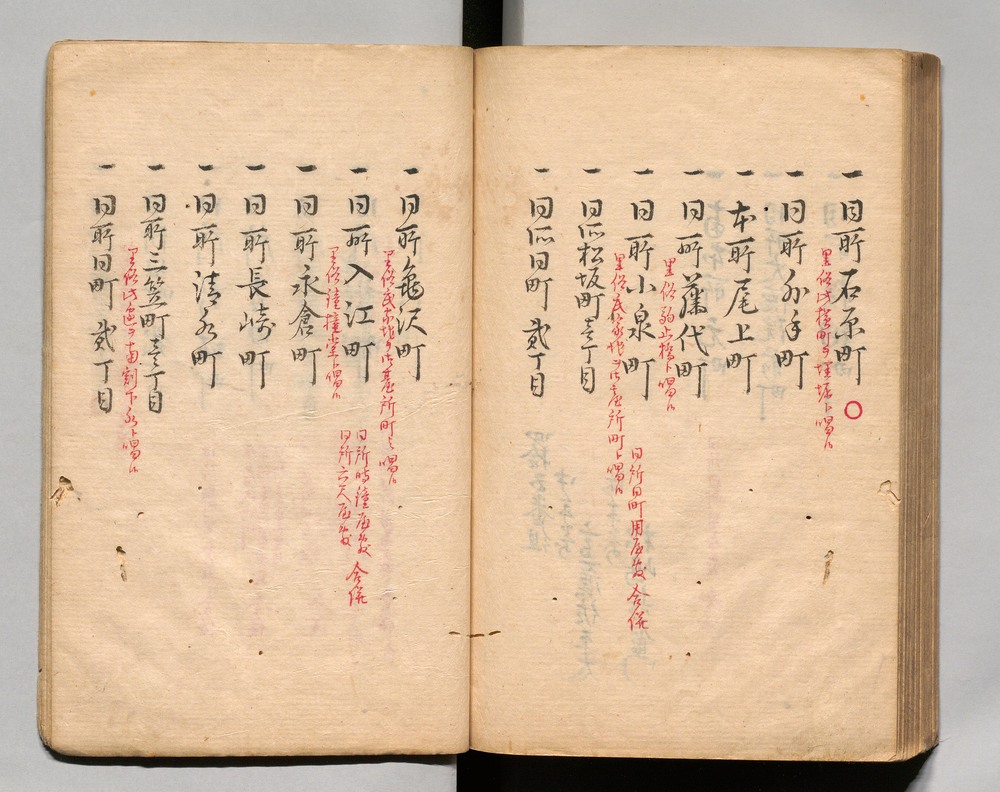 一 同所石原町
里俗此横町ヲ埋堀ト唱ル
一 同所外手町
一 本所尾上町
一 同所藤代町
里俗駒止橋ト唱ル
一 同所小泉町
里俗
所町ト唱ル
同所同町用屋敷合併
一 同所松坂町壱丁目
一 同所同町 弐丁目
一 同所亀沢町
里俗
所町ト唱ル
一 同所入江町
里俗鐘撞堂ト唱ル
同所時鐘屋敷
同所六尺屋敷
合併
一 同所永倉町
一 同所長崎町
一 同所清水町
一 同所三笠町壱丁目
里俗此辺ヲ南割下水ト唱ル
一 同所同町 弐丁目